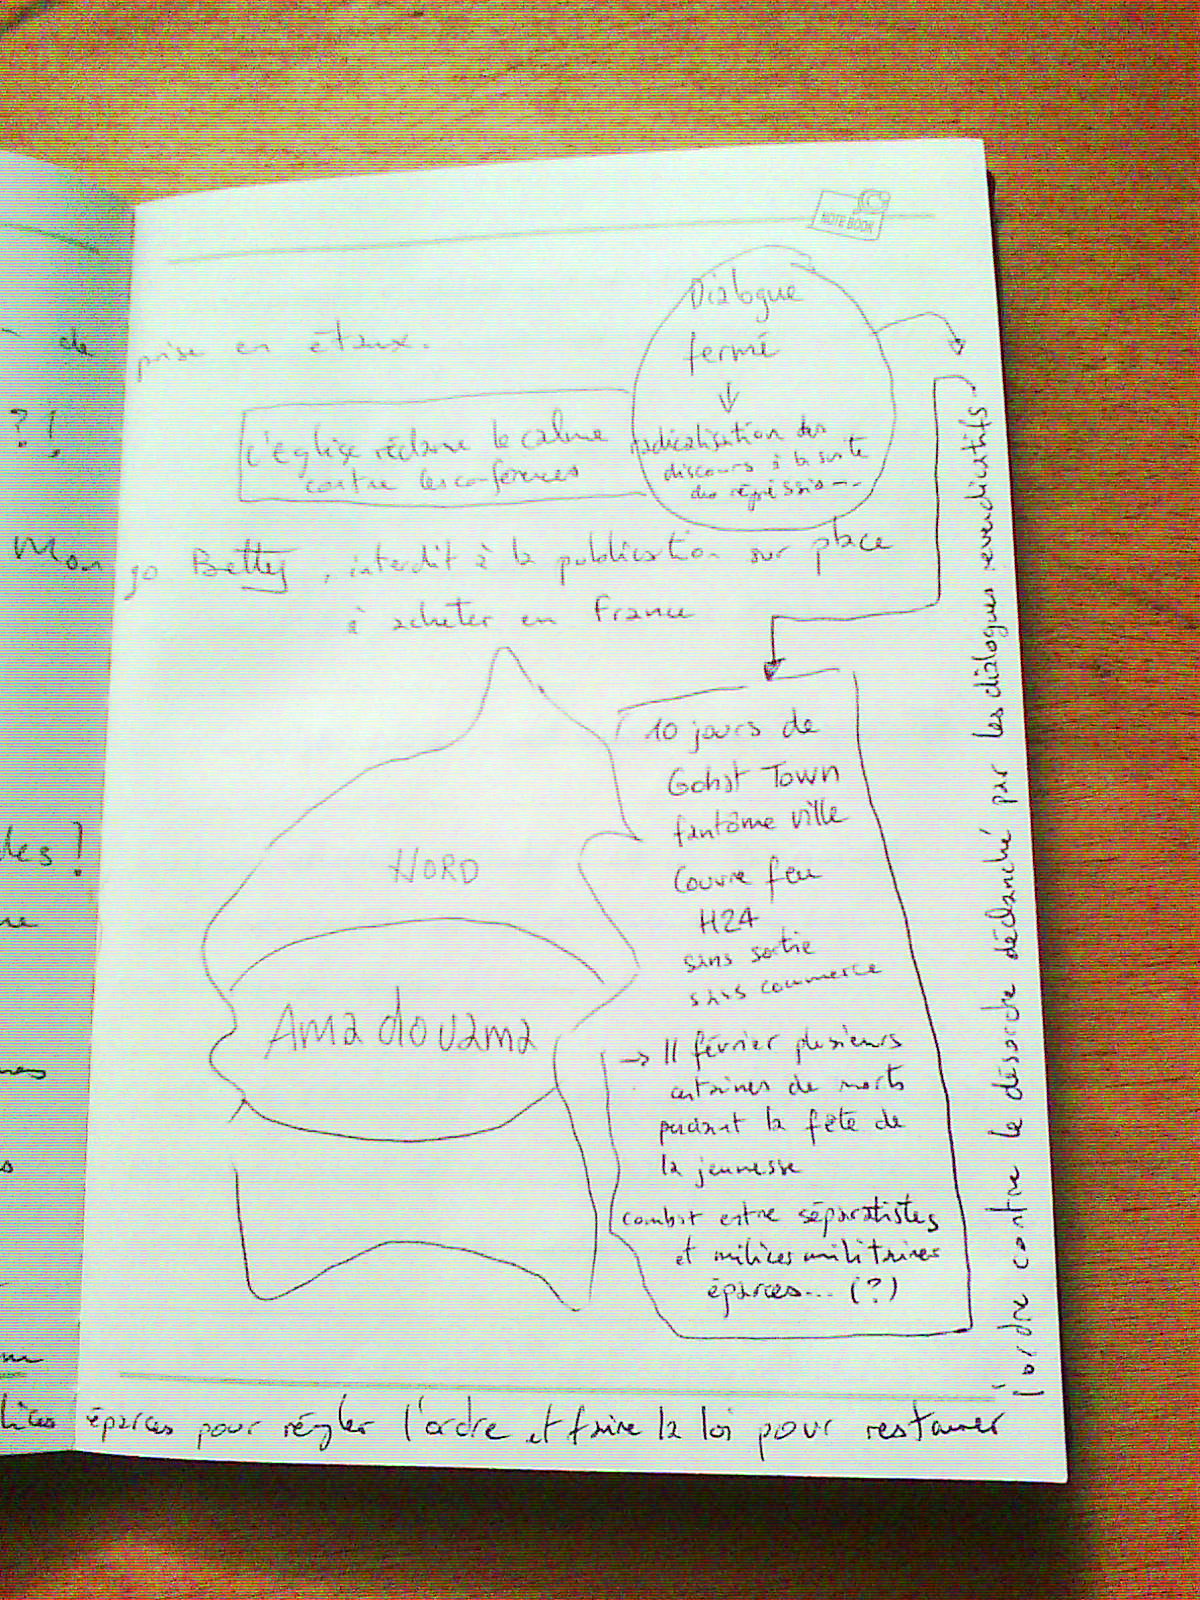 NOTEBOOK
de prise en étaux.
Dialogue
fermé
↓
radicalisation des
discours à la suite
des répressio--
?!
L'église réclame le calme
contre les conférences
Mongo Betty, interdit à la publication sur place
à acheter en France
10 jours de
Gohst Town
fantôme ville
Couvre feu
H24
sans sortie
sans commerce
→ 11 février plusieurs
centaines de morts
pendant la fête de
la jeunesse
combat entre séparatistes
et milices militaires
éparces... (?)
NORD
Amadouama
des!
éparces pour régler l'ordre et faire la loi pour restaurer
l'ordre contre le désordre déclanché par les dialogues revendicatifs.